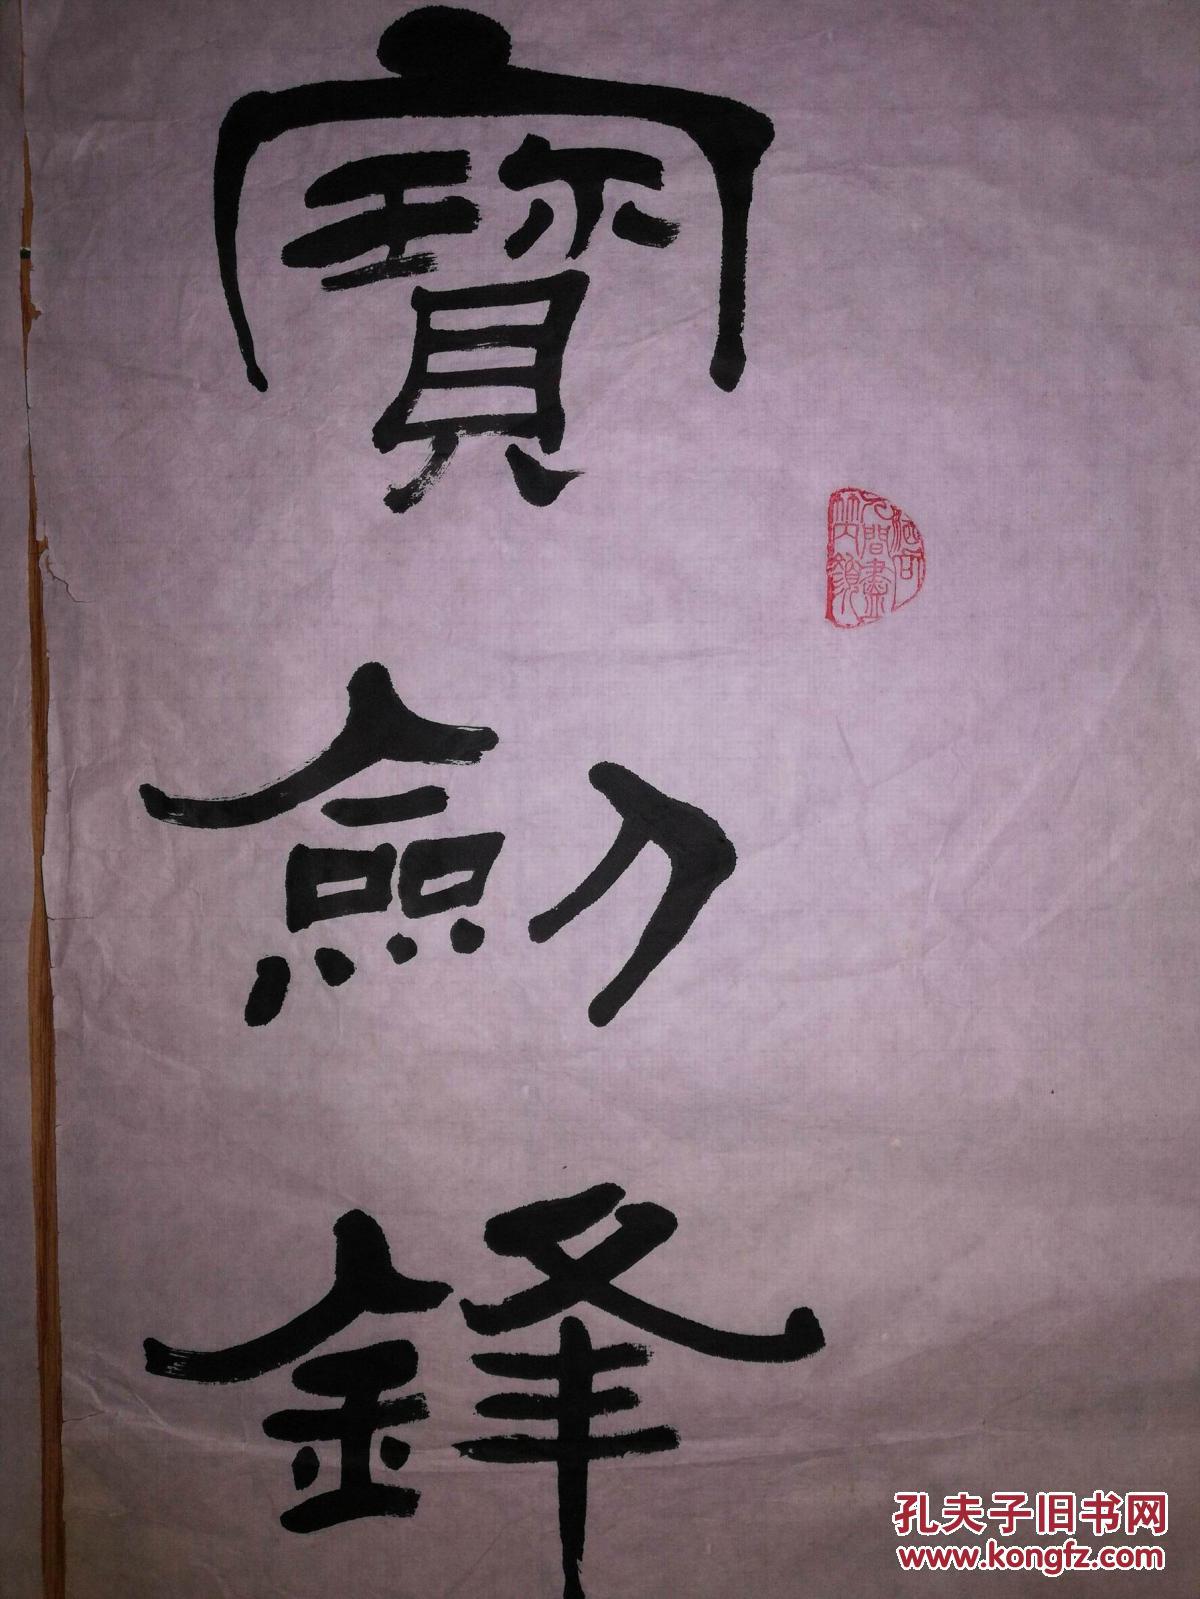 寶劍鋒
孔夫子旧书网
www.kongfz.com